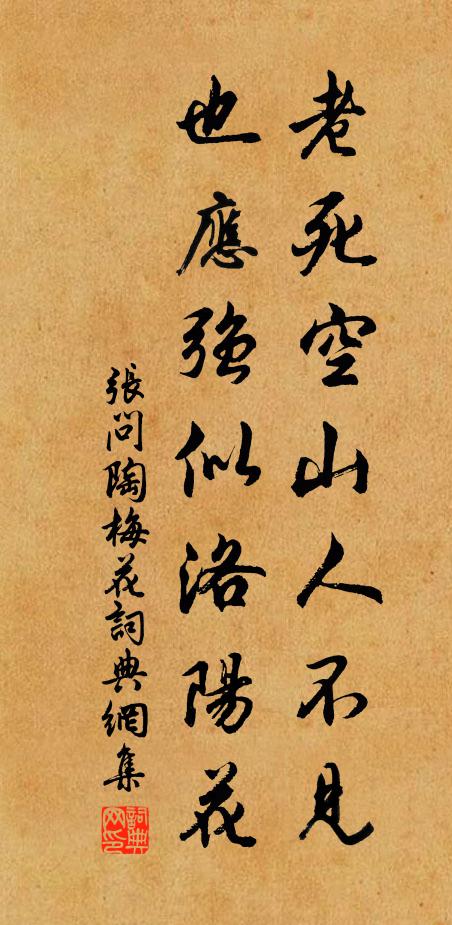 老死空山人不見
也應強似洛陽花
張問陶梅花詞典網集
詞典网印